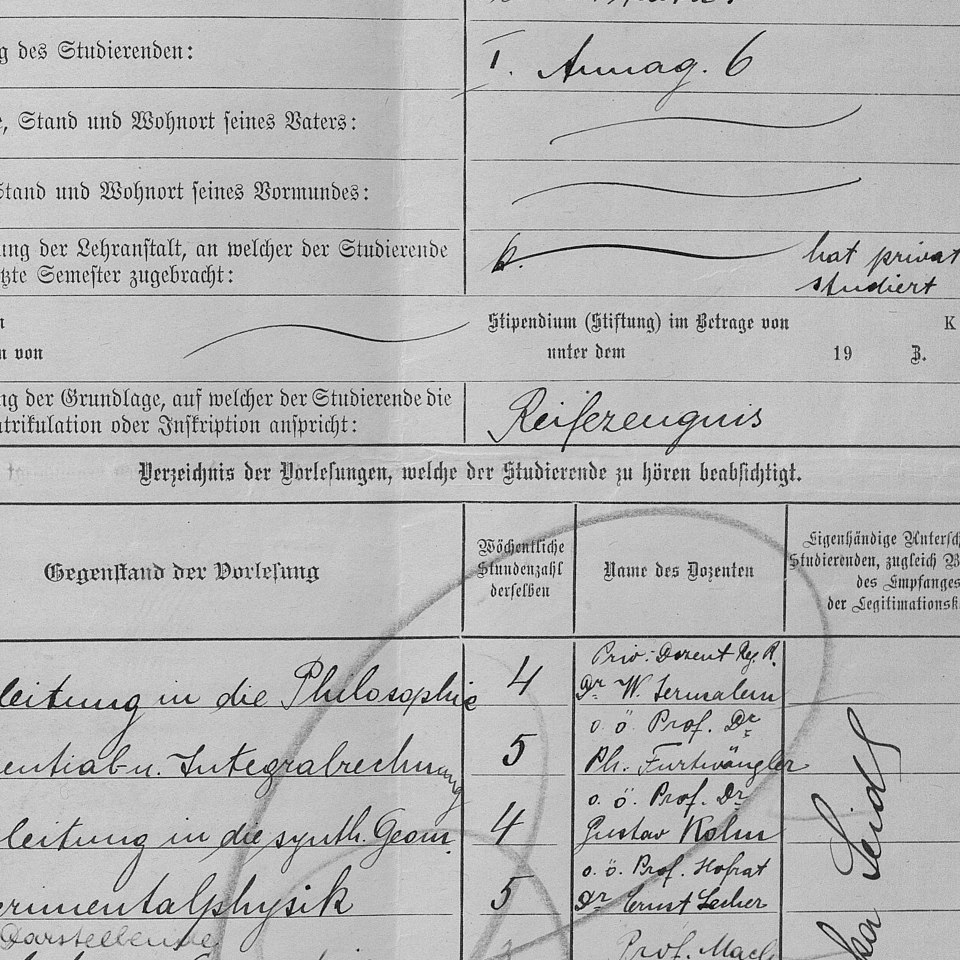 g des Studierenden:
I. Annag. 6
, Stand und Wohnort seines Vaters:
Stand und Wohnort seines Vormundes:
ung der Lehranstalt, an welcher der Studierende
tzte Semester zugebracht:
hat privat
studiert
n
n von
Stipendium (Stiftung) im Betrage von K
unter dem 19 Z.
ng der Grundlage, auf welcher der Studierende die
atrikulation oder Inskription anspricht:
Reifezeugnis
Verzeichnis der Vorlesungen, welche der Studierende zu hören beabsichtigt.
Gegenstand der Vorlesung
Wöchentliche
Stundenzahl
derselben
Name des Dozenten
Eigenhändige Untersch
Studierenden, zugleich B
des Empfanges
der Legitimationsk
leitung in die Philosophie
4
Priv: Dozent Reg. R.
Dr W. Jerusalem
ential- u. Integralrechnung
5
o. ö. Prof. Dr
Ph. Furtwängler
leitung in die synth. Geom.
4
o. ö. Prof. Dr
Gustav Kohn
erimentalphysik
5
o. ö. Prof. Hofrat
Dr Ernst Lecher
Darstellende
Prof. Mach
ka Seidl